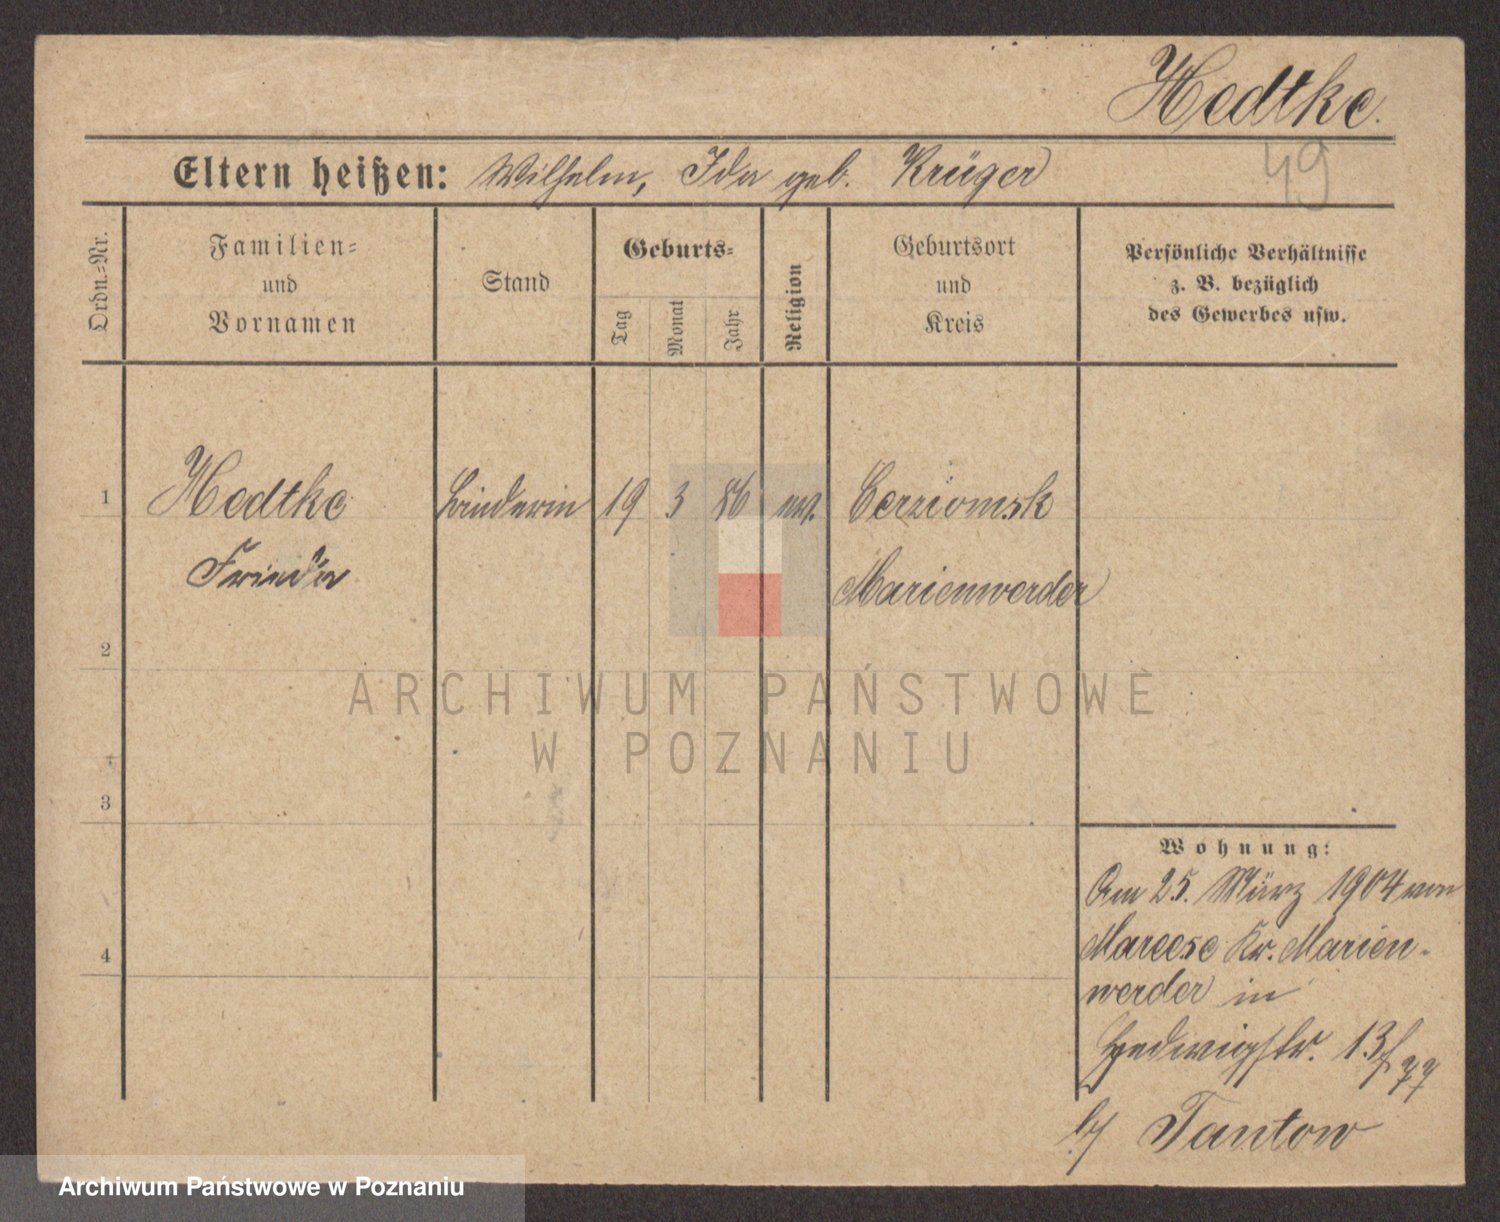 Hedtke.
49
Eltern heißen: Wilhelm, Ida geb. Krüger
Ordn.=Nr.
Familien=
und
Vornamen
Stand
Geburts=
Tag
Monat
Jahr
Religion
Geburtsort
und
Kreis
Persönliche Verhältnisse
z. B. bezüglich
des Gewerbes usw.
1 Hedtke 19 3 86 ev. Cerziomsk
Frieda Marienwerder
2
3
4
Wohnung:
Am 25. März 1904 von
Mareese Kr. Marien-
werder in
Hedwigstr. 13
b/ Tantow
ARCHIWUM PAŃSTWOWE
W POZNANIU
Archiwum Państwowe w Poznaniu